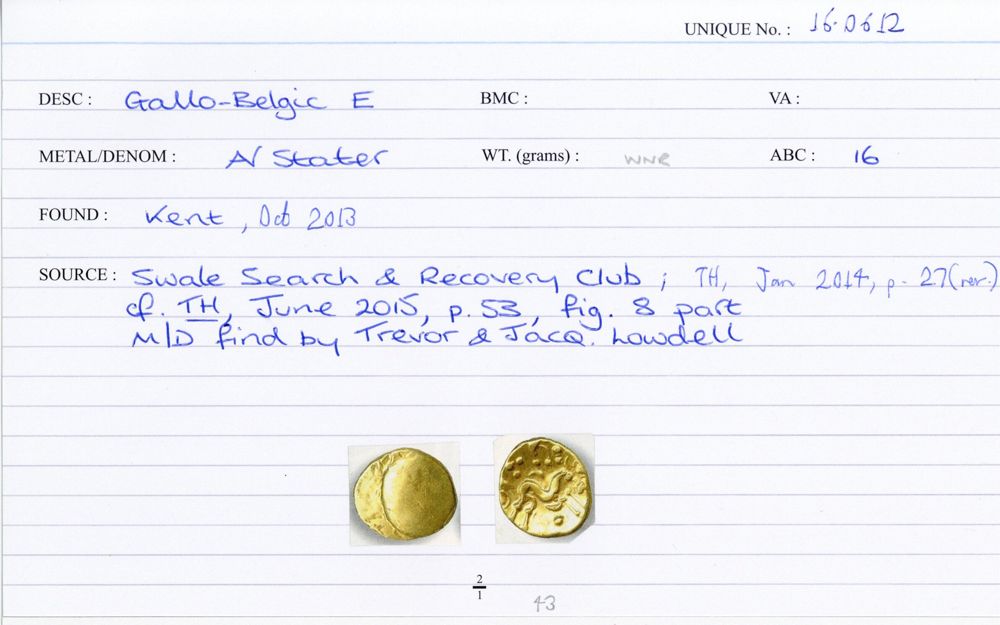 UNIQUE No. : 16.0612
DESC : Gallo-Belgic E BMC : VA :
METAL/DENOM : A/ Stater WT. (grams) : WNR ABC : 16
FOUND : Kent, Oct 2013
SOURCE : Swale Search & Recovery Club ; TH, Jan 2014, p. 27 (rev.)
cf. TH, June 2015, p. 53, fig. 8 part
M/D find by Trevor & Jacq. Lowdell
2/1
43